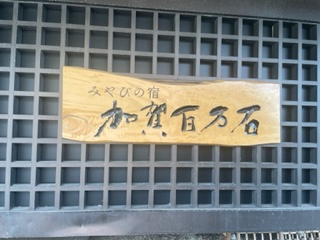 みやびの宿
加賀百万石